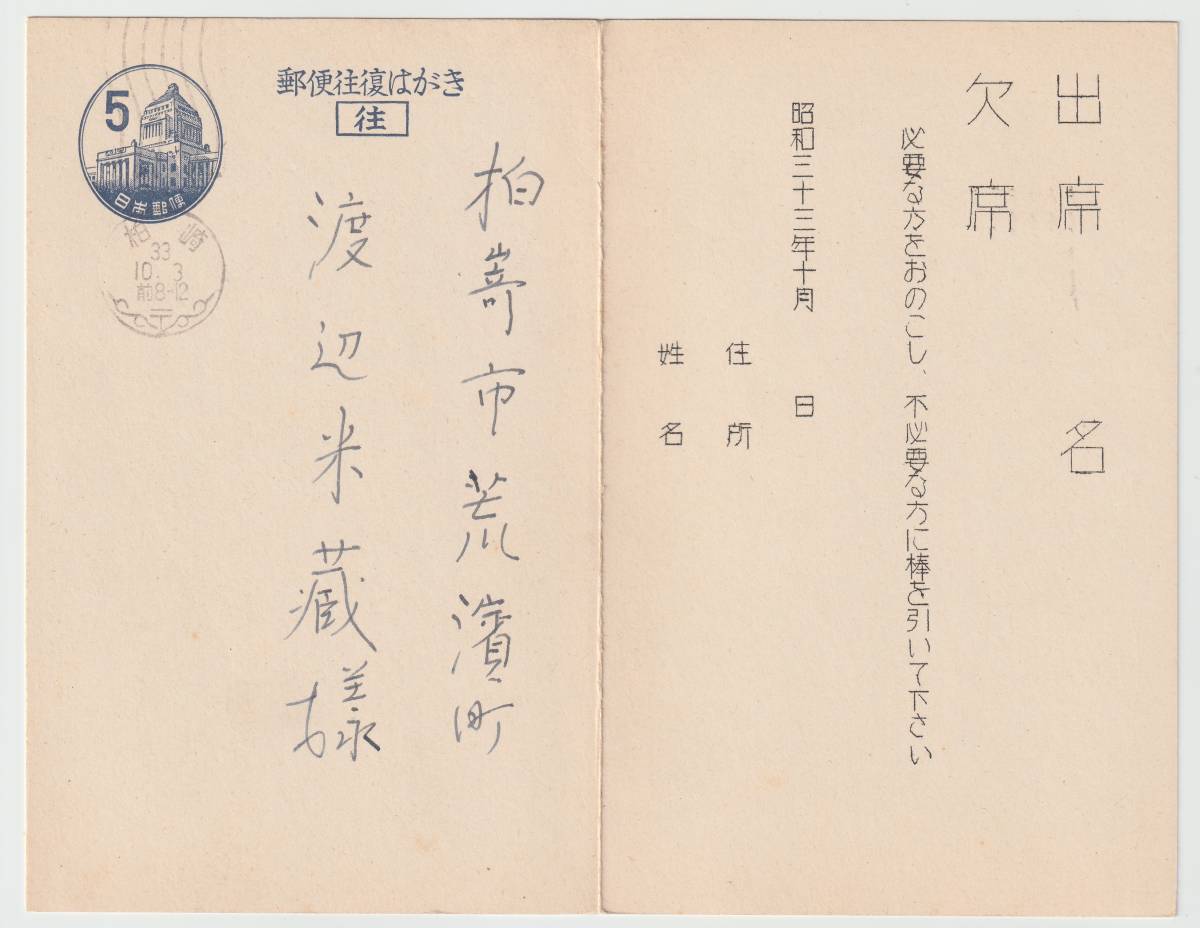 郵便往復はがき
往
5
日本郵便
柏崎
33
10.3
前8-12
柏嵜市荒濱町
渡辺米蔵様
出席 名
欠席
必要な方をおのこし、不必要な方に棒を引いて下さい
昭和三十三年十月 日
住所
姓名